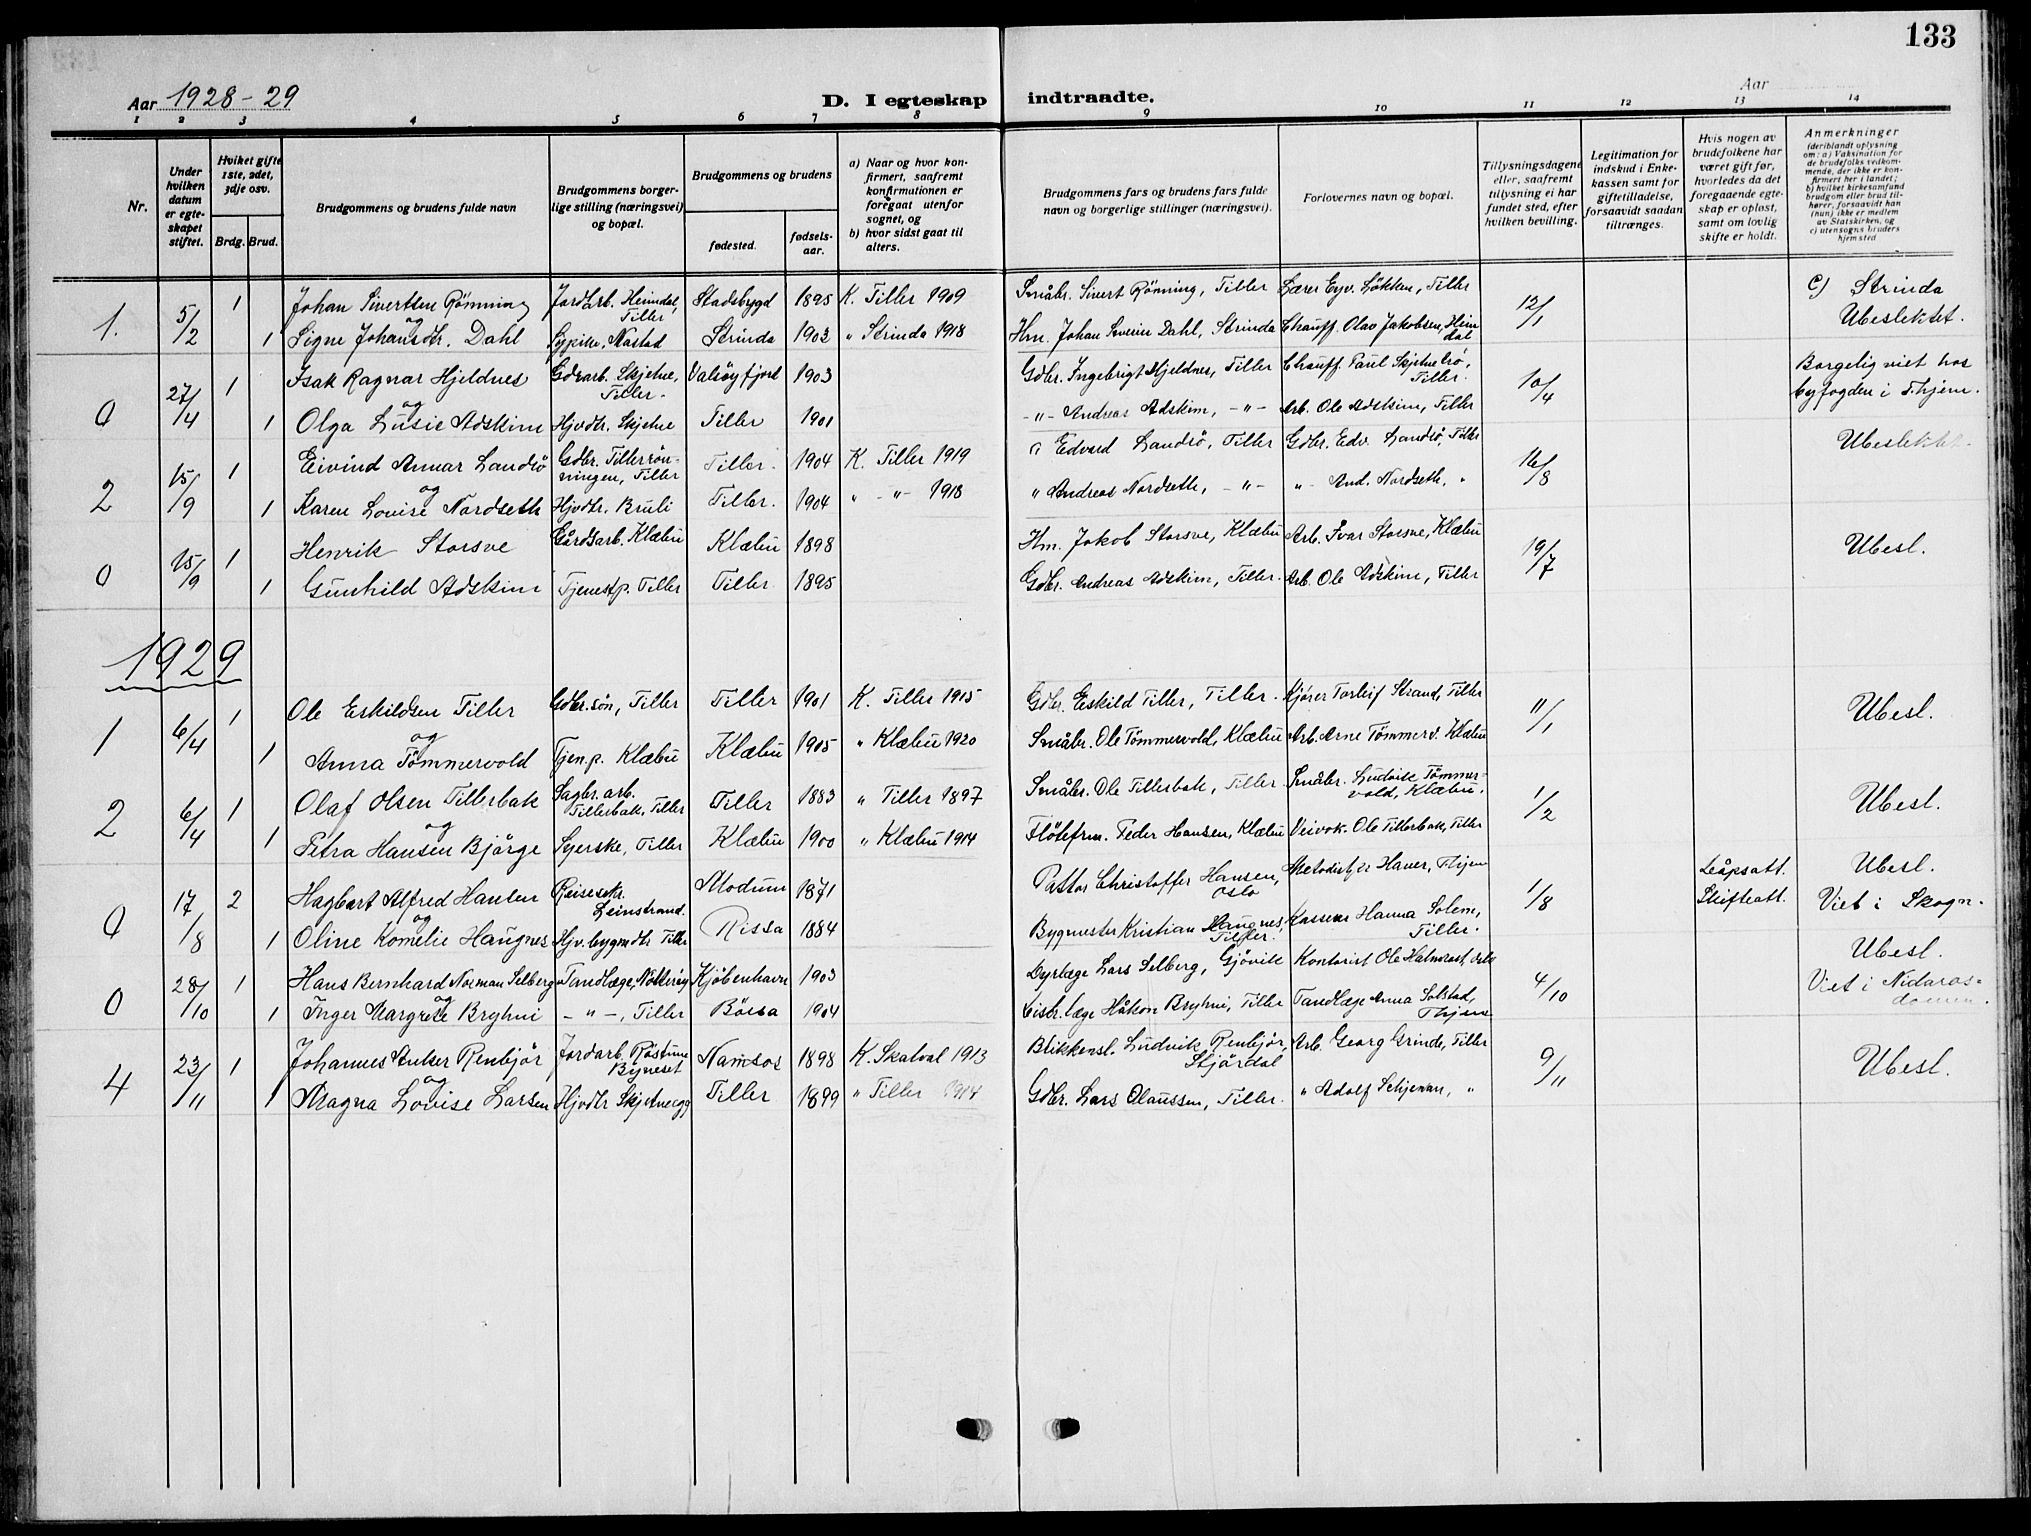 133
Aar 1928-29
D. I egteskap indtraadte.
Aar
1 2 3 4 5 6 7 8 9 10 11 12 13 14
Nr.
Under hvilken datum er egteskapet stiftet.
Hviket gifte 1ste, 2det, 3dje osv.
Brdg. Brud.
Brudgommens og brudens fulde navn
Brudgommens borgerlige stilling (næringsvei) og bopæl.
Brudgommens og brudens
fødested.
fødselsaar.
a) Naar og hvor konfirmert, saafremt konfirmationen er foregaat utenfor sognet, og
b) hvor sidst gaat til alters.
Brudgommens fars og brudens fars fulde navn og borgerlige stillinger (næringsvei).
Forlovernes navn og bopæl.
Tillysningsdagene eller, saafremt tillysning ei har fundet sted, efter hvilken bevilling.
Legitimation for indskud i Enkekassen samt for giftetilladelse, forsaavidt saadan tiltrænges.
Hvis nogen av brudefolkene har været gift før, hvorledes da det foregaaende egteskap er opløst, samt om lovlig skifte er holdt.
Anmerkninger (deriblandt oplysning om: a) Vaksination for de brudefolks vedkommende, der ikke er konfirmert her i landet; b) hvilket kirkesamfund brudgom eller brud tilhører, forsaavidt han (hun) ikke er medlem av Statskirken, og c) utensogns bruders hjemsted
1. 5/2 1 Johan Sivertsen Rönning Jordarb. Heimdal, Tiller Stadsbygd 1895 K. Tiller 1909 Småbr. Sivert Rönning, Tiller Lærer Eyv. Lökken, Tiller 12/1 C) Strinda
og
1 Signe Johansdtr. Dahl Sypike, Nastad Strinda 1903 " Strinda 1918 Hm. Johan Severin Dahl, Strinda Chauff. Olav Jakobsen, Heimdal Ubeslektet.
0 27/4 1 Isak Ragnar Hjeldnes Gdsarb. Skjetne, Tiller. Valsöyfjord 1903 Gdbr. Ingebrigt Hjeldnes, Tiller Chauff. Paul Skjetnetrö, Tiller. 10/4 Borgelig viet hos
og
1 Olga Lusie Adskim Hjvdtr. Skjetne Tiller 1901 -"- Andreas Adskim, -"- Arb. Ole Adskim, Tiller byfogden i Thjem.
2 15/9 1 Eivind Annar Landsö Gdbr. Tillerrönningen, Tiller Tiller. 1904 K. Tiller 1919 " Edvard Landsö, Tiller Gdbr. Edv. Landsö, Tiller 16/8 Ubeslektet.
og
1 Karen Lovise Nordseth Hjvdtr. Bruli Tiller. 1904 " -"- 1918 " Andreas Nordseth, -"- "- And. Nordseth, "
0 15/9 1 Henrik Storsve Gårdsarb. Klæbu Klæbu 1898 Hm. Jakob Storsve, Klæbu Arb. Ivar Storsve, Klæbu 19/7 Ubesl.
1 Gunhild Adskim Tjenestp. Tiller Tiller 1895 Gdbr. Andreas Adskim, Tiller. Arb. Ole Adskim, Tiller
1929
1 6/4 1 Ole Eskildsen Tiller Gdbr.sön, Tiller Tiller 1901 K. Tiller 1915 Gdbr. Eskild Tiller, Tiller. Kjörer Torleif Strand, Tiller 11/1 Ubesl.
og
1 Anna Tömmervold Tjen.p. Klæbu Klæbu 1905 " Klæbu 1920 Småbr. Ole Tömmervold, Klæbu Arb. Arne Tömmerv. Klæbu
2 6/4 1 Olaf Olsen Tillerbak Sagbr.arb. Tillerbak, Tiller Tiller 1883 " Tiller 1897 Småbr. Ole Tillerbak, Tiller Småbr. Ludvik Tömmervold, Klæbu. 1/2 Ubesl.
og
1 Petra Hansen Bjørge Syerske, Tiller Klæbu 1900 " Klæbu 1914 Flötefrm. Peder Hansen, Klæbu Veivok. Ole Tillerbak, Tiller
0 17/8 2 Hagbart Alfred Hansen Reisesekr. Leinstrand. Modum 1871 Pastor Christoffer Hansen, Oslo Metodistpr. Hauer, Thjem 1/8 Löpsatt. Skifteatt. Ubesl.
og
1 Oline Kornelie Haugnes Hjv. bygmdtr Tiller Rissa 1884 Bygmester Kristian Haugnes, Tiller. Hanna Solem, Tiller. Viet i Skogn.
0 28/10 1 Hans Bernhard Norman Selberg Tandlæge, Nötteröy Kjöbenhavn 1903 Dyrlæge Lars Selberg, Gjövik Kontorist Ole 4/10 Ubesl.
og
1 Inger Margrete Bryhni -"-, Tiller Börsa 1904 Distr.læge Håkon Bryhni, Tiller Tandlæge Anna Solstad, Thjem Viet i Nidarosdomen.
4 23/11 1 Johannes Anker Renbjör Jordarb. Röstune Byneset Namsos 1898 K. Skatval 1913 Blikkensl. Ludvik Renbjör, Stjördal Arb. Georg Grinde, Tiller 9/11 Ubesl.
og
1 Magna Lovise Larsen Hjvdtr Skjetneegg Tiller 1899 " Tiller 1914 Gdbr. Lars Olaussen, Tiller. " Adolf Schjevan, "